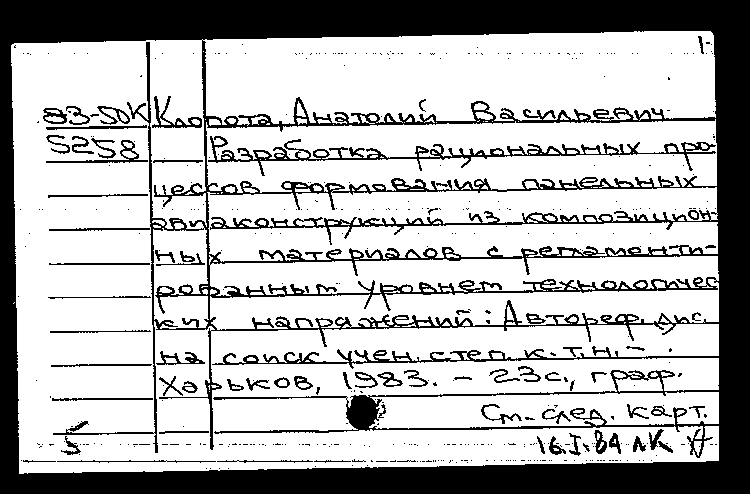 1-
83-50К Клопота, Анатолий Васильевич
5258 Разработка рациональных про-
цессов формования панельных
авиаконструкций из композицион-
ных материалов с регламенти-
рованным уровнем технологичес
ких напряжений: Автореф. дис.
на соиск учен. степ. к. т. н. -
Харьков, 1983. - 23с., граф.
См. след. карт.
5 16.I.84 лК